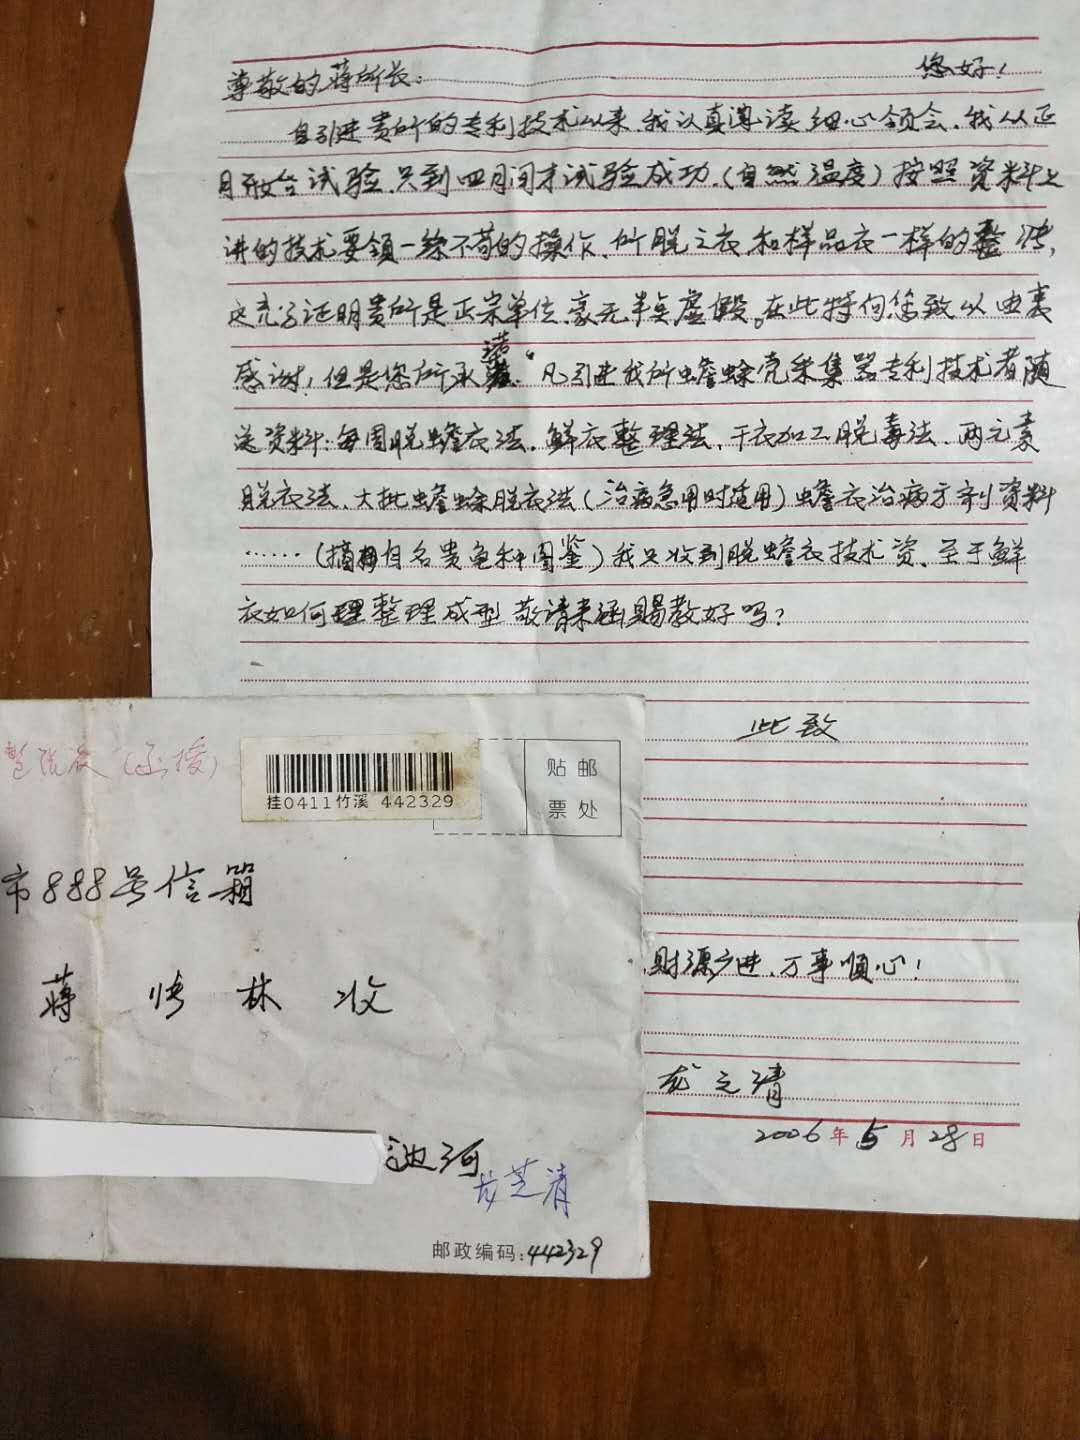 尊敬的蒋所长： 您好！
自引进贵所的专利技术以来，我认真遵读细心领会，我从正
月开始试验，只到四月间才试验成功，（自然温度）按照资料上
讲的技术要领一丝不苟的操作，所脱之衣和样品衣一样的整洁，
这充分证明贵所是正宗单位，豪无半点虚假。在此特向您致以由衷
感谢！但是您所承诺“凡引进我所蟾蜍壳采集器专利技术者随
送资料：每周脱蟾衣法、鲜衣整理法、干衣加工脱毒法、两元素
脱衣法、大批蟾蜍脱衣法（治病急用时适用）蟾衣治病方剂资料
……（摘自名贵龟种图鉴）我只收到脱蟾衣技术资、至于鲜
衣如何理整理成型 敬请来函赐教好吗？
此致
财源广进、万事顺心！
龙之清
2006年5月28日
（函授）
挂0411竹溪 442329
贴邮
票处
市888号信箱
蒋 林 收
河
龙芝清
邮政编码：442329